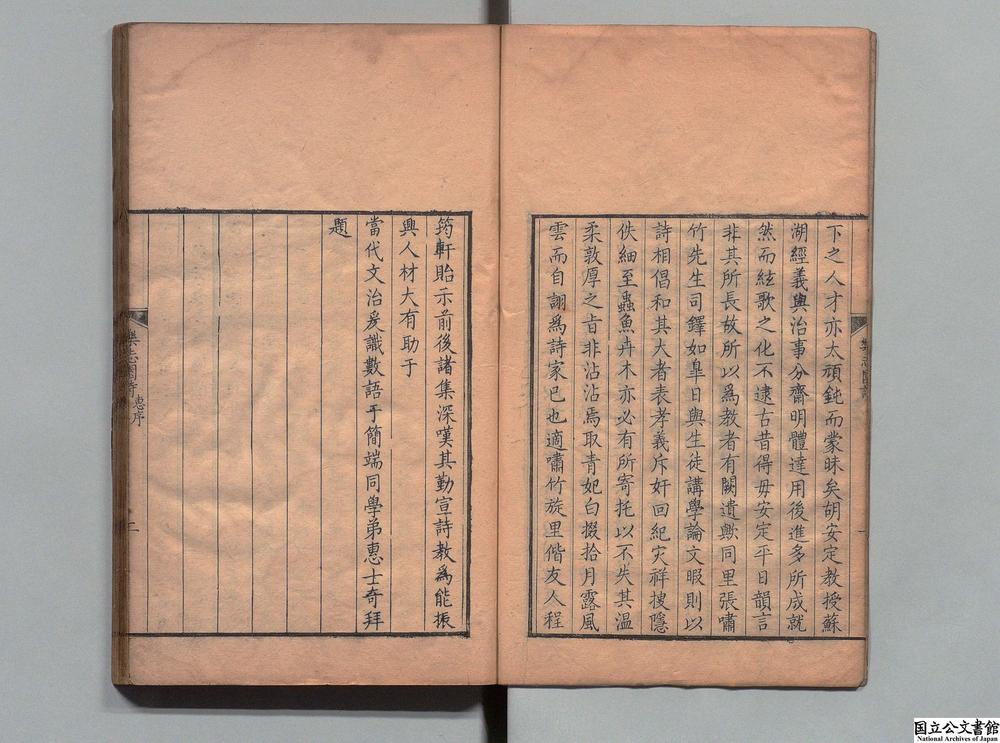 下之人才亦太頑鈍而蒙昧矣胡安定教授蘇
湖經義與治事分齋明體達用後進多所成就
然而絃歌之化不逮古昔得毋安定平日韻言
非其所長故所以為教者有闕遺歟同里張嘯
竹先生司鐸如臯日與生徒講學論文暇則以
詩相倡和其大者表孝義斥奸回紀灾祥搜隱
佚細至蟲魚卉木亦必有所寄托以不失其溫
柔敦厚之旨非沾沾焉取青妃白掇拾月露風
雲而自詡為詩家已也適嘯竹旋里偕友人程
筠軒貽示前後諸集深嘆其勤宣詩教為能振
興人材大有助于
當代文治爰識數語于簡端同學弟惠士奇拜
題
樂志園詩 惠序
二
国立公文書館
National Archives of Japan